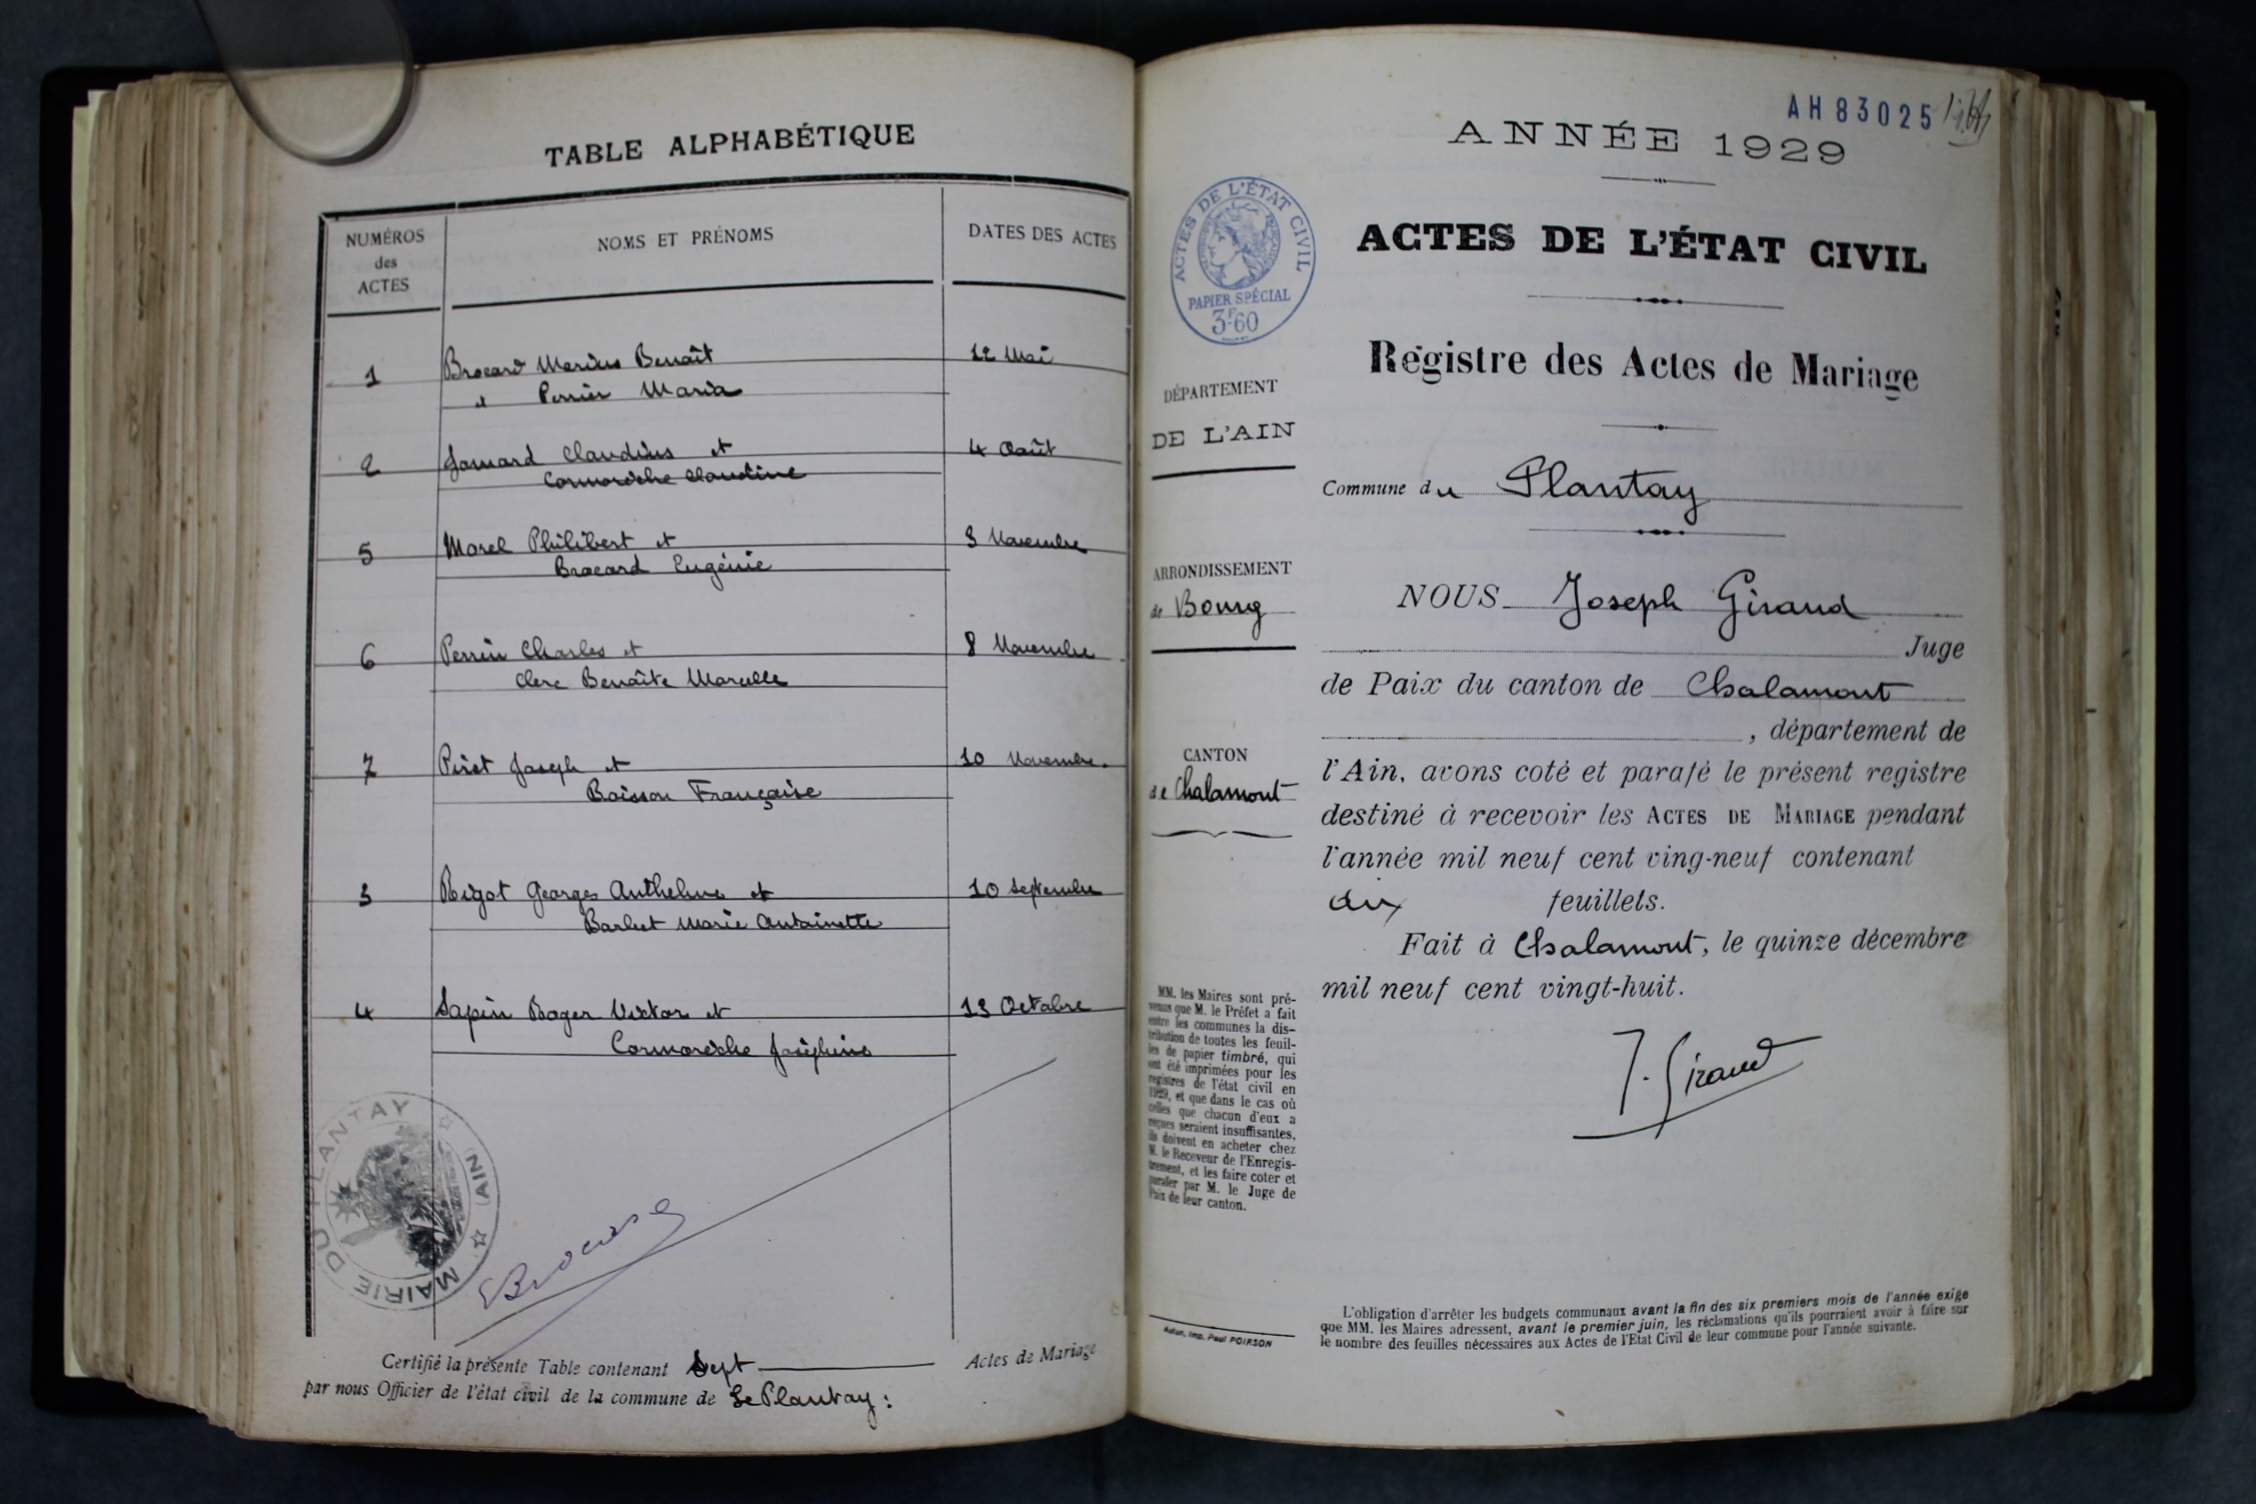 TABLE ALPHABÉTIQUE
NUMÉROS
des
ACTES
NOMS ET PRÉNOMS
DATES DES ACTES
1 Brocard Marius Benoît 12 Mai
et Perrier Maria
2 Jomard Claudius et 4 Août
Cormorèche Claudine
5 Morel Philibert et 3 Novembre
Brocard Eugénie
6 Perrin Charles et 8 Novembre
Clerc Benoîte Marcelle
7 Piret Joseph et 10 Novembre.
Boisson Françoise
3 Rigot Georges Anthelme et 10 Septembre
Barbet Marie Antoinette
4 Sapin Roger Victor et 13 Octobre
Cormorèche Joséphine
MAIRIE DU PLANTAY
(AIN)
Brocard
Certifié la présente Table contenant Sept Actes de Mariage
par nous Officier de l'état civil de la commune de Le Plantay :
AH 83025
ANNÉE 1929
ACTES DE L'ÉTAT CIVIL
PAPIER SPÉCIAL
3F60
ACTES DE L'ÉTAT CIVIL
Registre des Actes de Mariage
DÉPARTEMENT
DE L'AIN
Commune du Plantay
ARRONDISSEMENT
de Bourg
CANTON
de Chalamont
NOUS Joseph Giraud
Juge
de Paix du canton de Chalamont
, département de
l'Ain, avons coté et parafé le présent registre
destiné à recevoir les ACTES DE MARIAGE pendant
l'année mil neuf cent ving-neuf contenant
dix feuillets.
Fait à Chalamont, le quinze décembre
mil neuf cent vingt-huit.
J. Giraud
MM. les Maires sont pré-
venus que M. le Préfet a fait
entre les communes la dis-
tribution de toutes les feuil-
les de papier timbré, qui
ont été imprimées pour les
registres de l'état civil en
1929, et que dans le cas où
celles que chacun d'eux a
reçues seraient insuffisantes,
ils doivent en acheter chez
M. le Receveur de l'Enregis-
trement, et les faire coter et
parafer par M. le Juge de
Paix de leur canton.
Imp. Paul POIRSON
L'obligation d'arrêter les budgets communaux avant la fin des six premiers mois de l'année exige
que MM. les Maires adressent, avant le premier juin, les réclamations qu'ils pourraient avoir à faire sur
le nombre des feuilles nécessaires aux Actes de l'Etat Civil de leur commune pour l'année suivante.